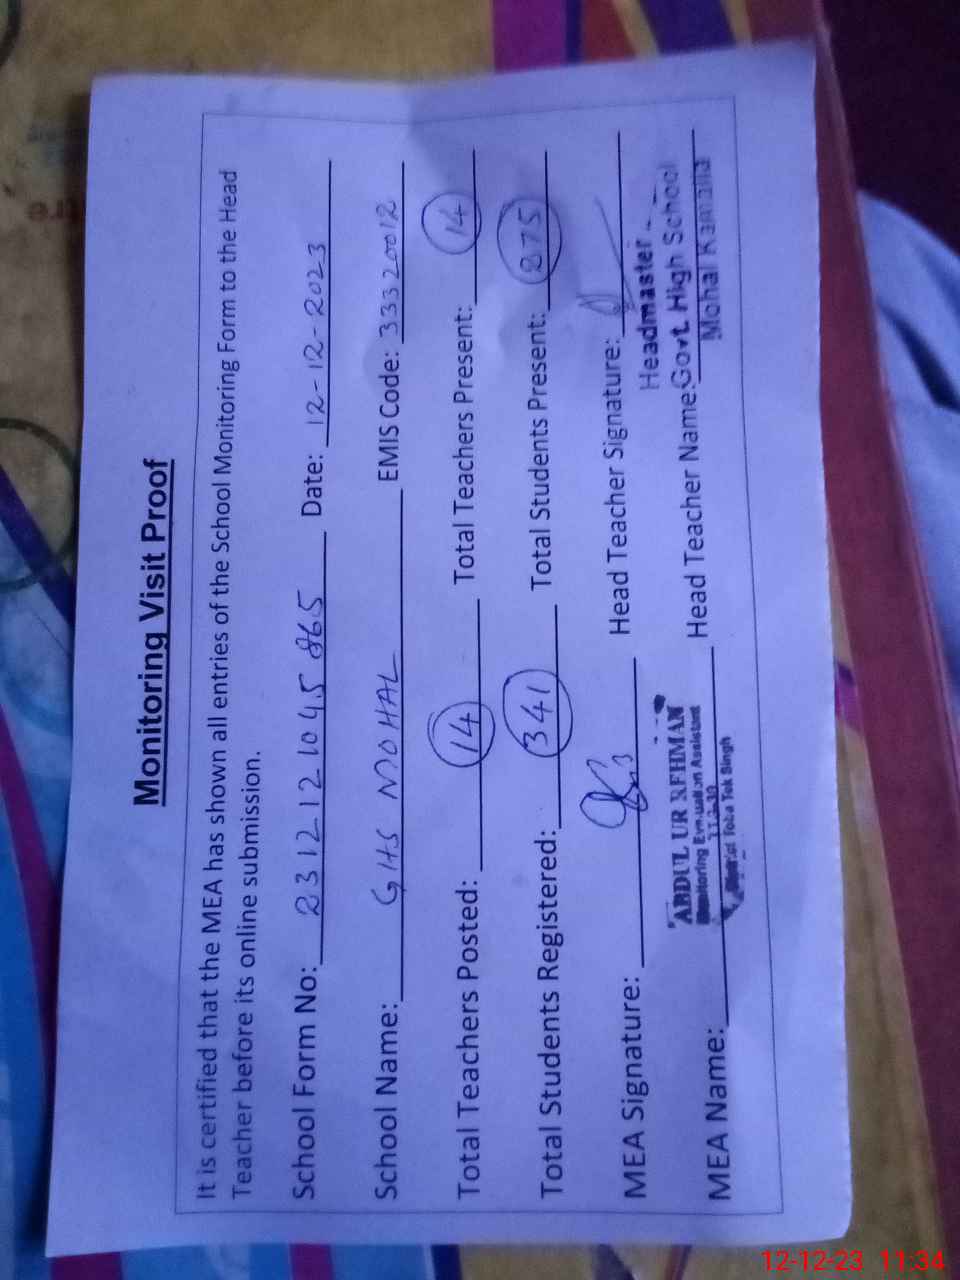 Monitoring Visit Proof
It is certified that the MEA has shown all entries of the School Monitoring Form to the Head
Teacher before its online submission.
School Form No: 231212 1045 865 Date: 12-12-2023
School Name: GHS MOHAL EMIS Code: 33320012
Total Teachers Posted: 14 Total Teachers Present: 14
Total Students Registered: 341 Total Students Present: 275
MEA Signature: Head Teacher Signature:
ABDUL UR REHMAN
Monitoring Evaluation Assistant
District Toba Tek Singh
Headmaster
MEA Name: Head Teacher Name: Govt. High School
Mohal Kamalia
12-12-23 11:34